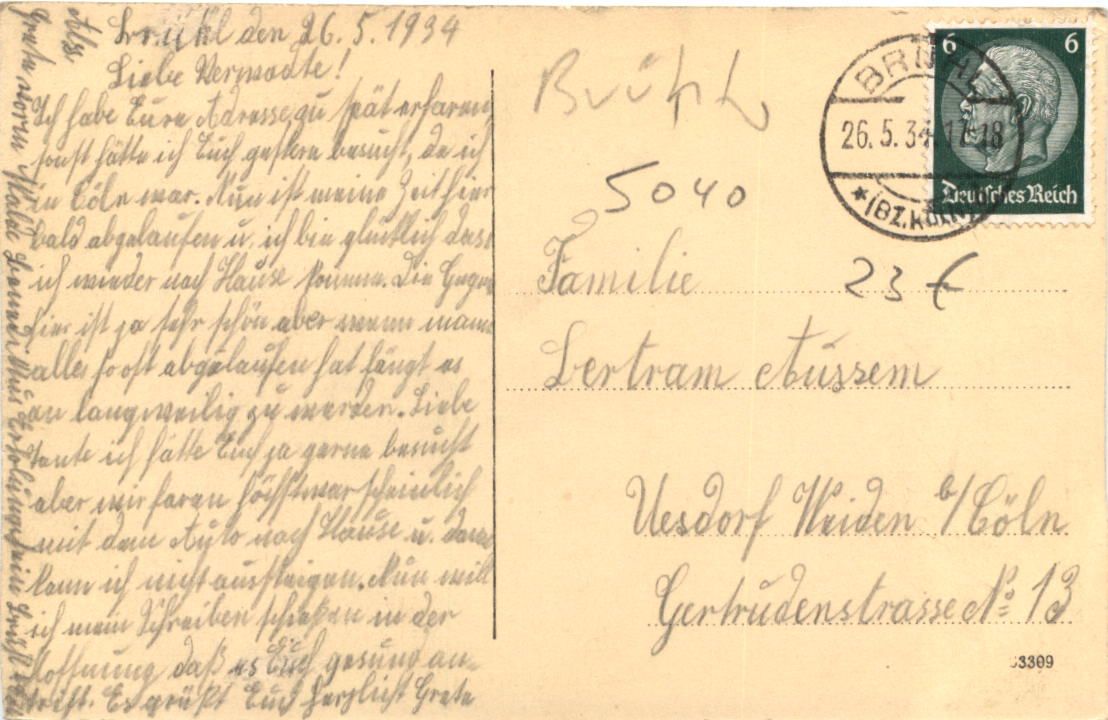 Brühl den 26.5.1934
Liebe Verwadte!
Ich habe Eure Adresse zu spät erfaren
sonst hätte ich Euch gestern besucht, da ich
in Cöln war. Nun ist meine Zeit hier
bald abgelaufen u. ich bin glücklich das
ich wieder nach Hause komme. Die Gegen
hier ist ja sehr schön aber wenn mann
alles so oft abgelaufen hat fängt es
an langweilig zu werden. Liebe
Tante ich hätte Euch ja gerne besucht
aber wir faren höchstwarscheinlich
mit dem Auto nach Hause u. dann
kann ich nicht aussteigen. Nun will
ich mein Schreiben schließen in der
Hoffnung daß es Euch gesund an-
trift. Es grüßt Euch herzlich Grete
Abs
Grete
Erholungsheim Brühl
Brühl
5040
23 €
BRÜHL
26.5.34.17-18
(BZ. KÖLN)
6 6
Deutsches Reich
Familie
Bertram Aussem
Uesdorf Weiden b/Cöln
Gertrudenstrasse No 13
3309